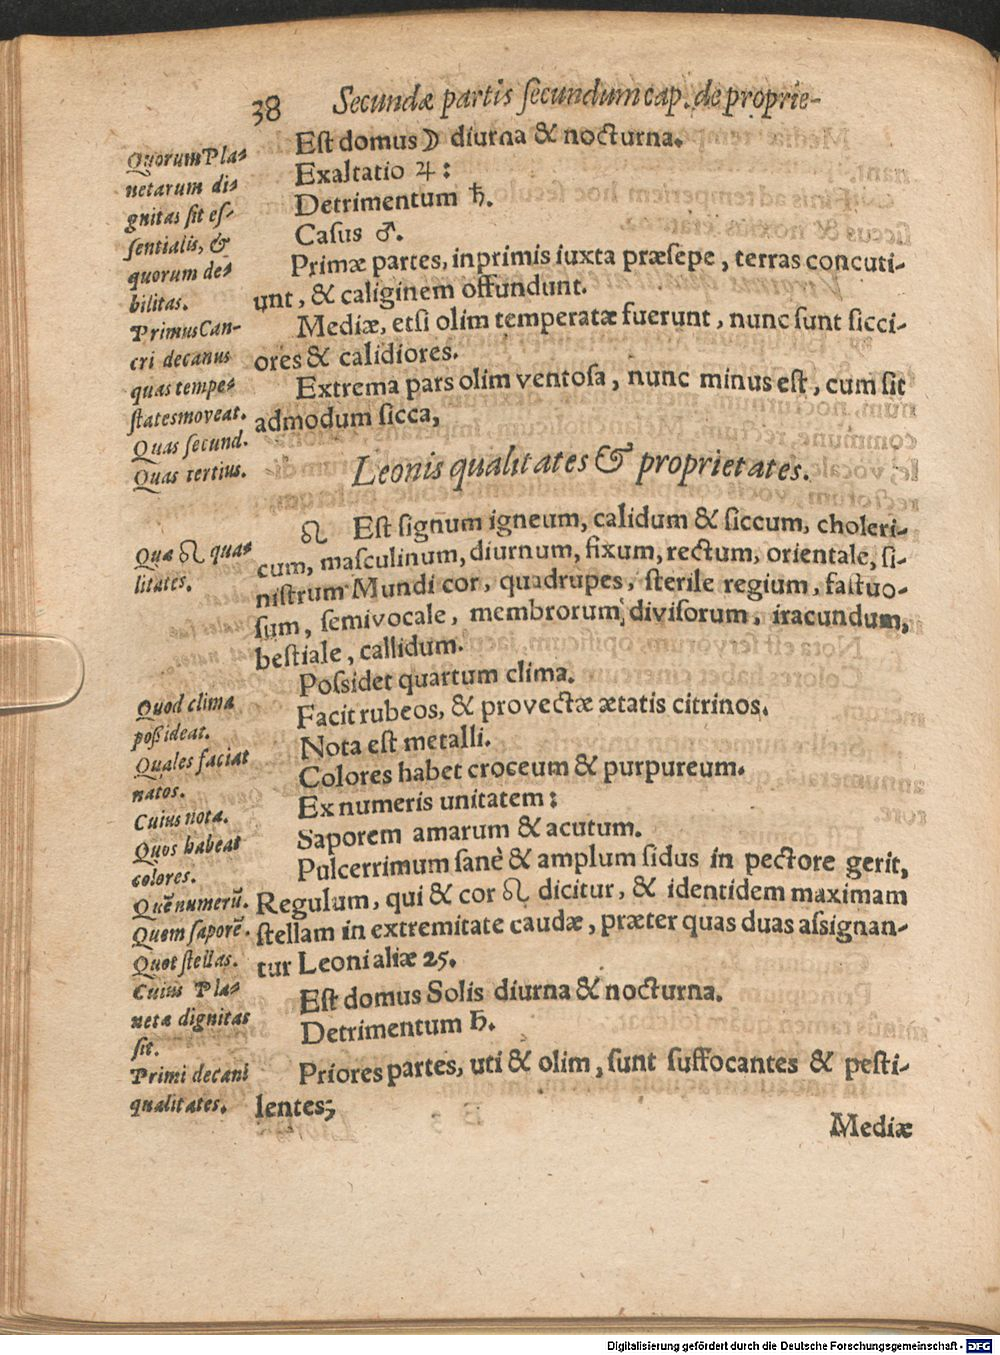 38 Secundæ partis secundum cap. de proprie-
Est domus ☽ diurna & nocturna.
Exaltatio ♃ :
Detrimentum ♄.
Casus ♂.
Primæ partes, inprimis iuxta præsepe, terras concuti-
unt, & caliginem offundunt.
Mediæ, etsi olim temperatæ fuerunt, nunc sunt sicci-
ores & calidiores.
Extrema pars olim ventosa, nunc minus est, cum sit
admodum sicca,
Quorum Pla-
netarum di-
gnitas sit es-
sentialis, &
quorum de-
bilitas.
Primus Can-
cri decanus
quas tempe-
states moveat.
Quas secund.
Quas tertius.
Leonis qualitates & proprietates.
♌ Est signum igneum, calidum & siccum, choleri-
cum, masculinum, diurnum, fixum, rectum, orientale, si-
nistrum Mundi cor, quadrupes, sterile regium, fastuo-
sum, semivocale, membrorum, divisorum, iracundum,
bestiale, callidum.
Possidet quartum clima.
Facit rubeos, & provectæ ætatis citrinos.
Nota est metalli.
Colores habet croceum & purpureum.
Ex numeris unitatem :
Saporem amarum & acutum.
Pulcerrimum sanè & amplum sidus in pectore gerit,
Regulum, qui & cor ♌ dicitur, & identidem maximam
stellam in extremitate caudæ, præter quas duas assignan-
tur Leoni aliæ 25.
Est domus Solis diurna & nocturna.
Detrimentum ♄.
Priores partes, uti & olim, sunt suffocantes & pesti-
lentes;
Quæ ♌ qua-
litates.
Quod clima
possideat.
Quales faciat
natos.
Cuius nota.
Quos habeat
colores.
Quẽ numerũ.
Quem saporẽ.
Quot stellas.
Cuius Pla-
netæ dignitas
sit.
Primi decani
qualitates.
Mediæ
Digitalisierung gefördert durch die Deutsche Forschungsgemeinschaft - DFG